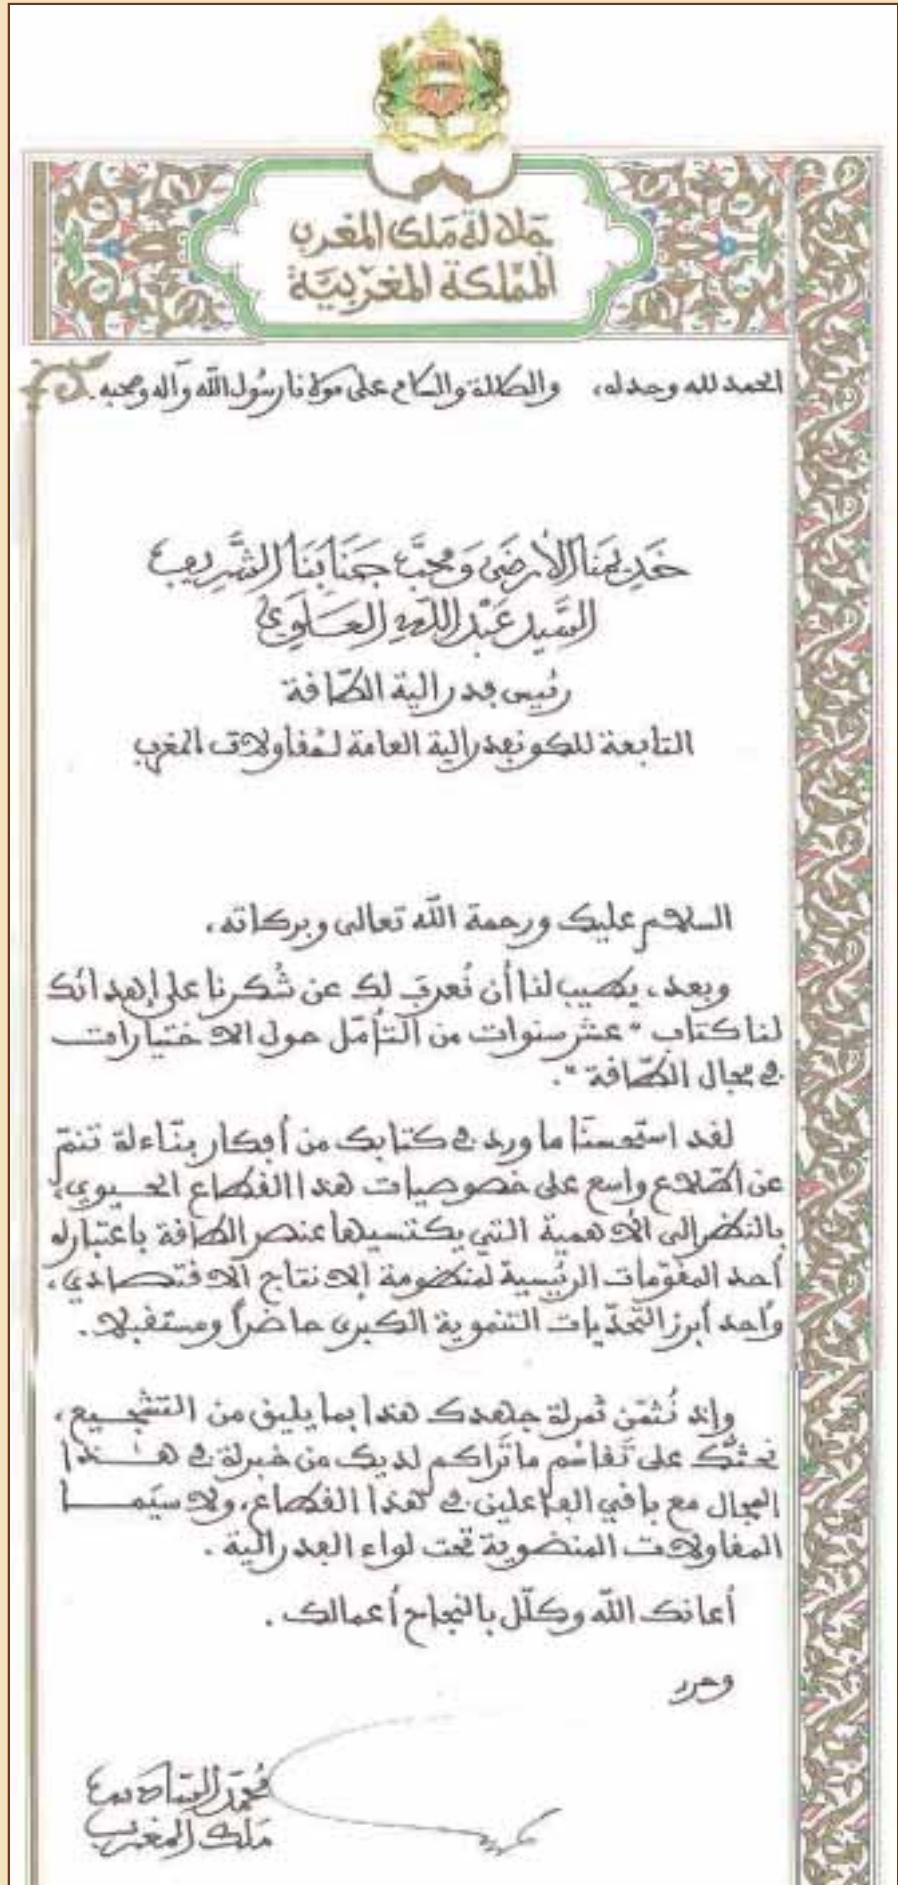 جلالة ملك المغرب
المملكة المغربية
الحمد لله وحده، والصلاة والسلام على مولانا رسول الله وآله وصحبه.
خديمنا الأرضى ومحب جنابنا الشريف
السيد عبد الله العلوي
رئيس فدرالية الطاقة
التابعة للكونفدرالية العامة لمقاولات المغرب
السلام عليك ورحمة الله تعالى وبركاته،
وبعد، يطيب لنا أن نُعرب لك عن شُكرنا على إهدائك
لنا كتاب "عشر سنوات من التأمّل حول الاختيارات
في مجال الطّاقة".
لقد استحسنّا ما ورد في كتابك من أفكار بنّاءة تنمّ
عن اطّلاع واسع على خصوصيات هذا القطاع الحيوي،
بالنظر إلى الأهمية التي يكتسيها عنصر الطاقة باعتباره
أحد المقوّمات الرئيسية لمنظومة الإنتاج الاقتصادي،
وأحد أبرز التّحدّيات التنموية الكبرى حاضراً ومستقبلا.
وإذ نُثمّن ثمرة جهدك هذا بما يليق من التشجيع،
نحثّك على تَقاسُم ما تَراكم لديك من خبرة في هذا
المجال مع باقي الفاعلين في هذا القطاع، ولا سيّما
المقاولات المنضوية تحت لواء الفدرالية.
أعانك الله وكلّل بالنجاح أعمالك.
وحرر
محمد السادس
ملك المغرب